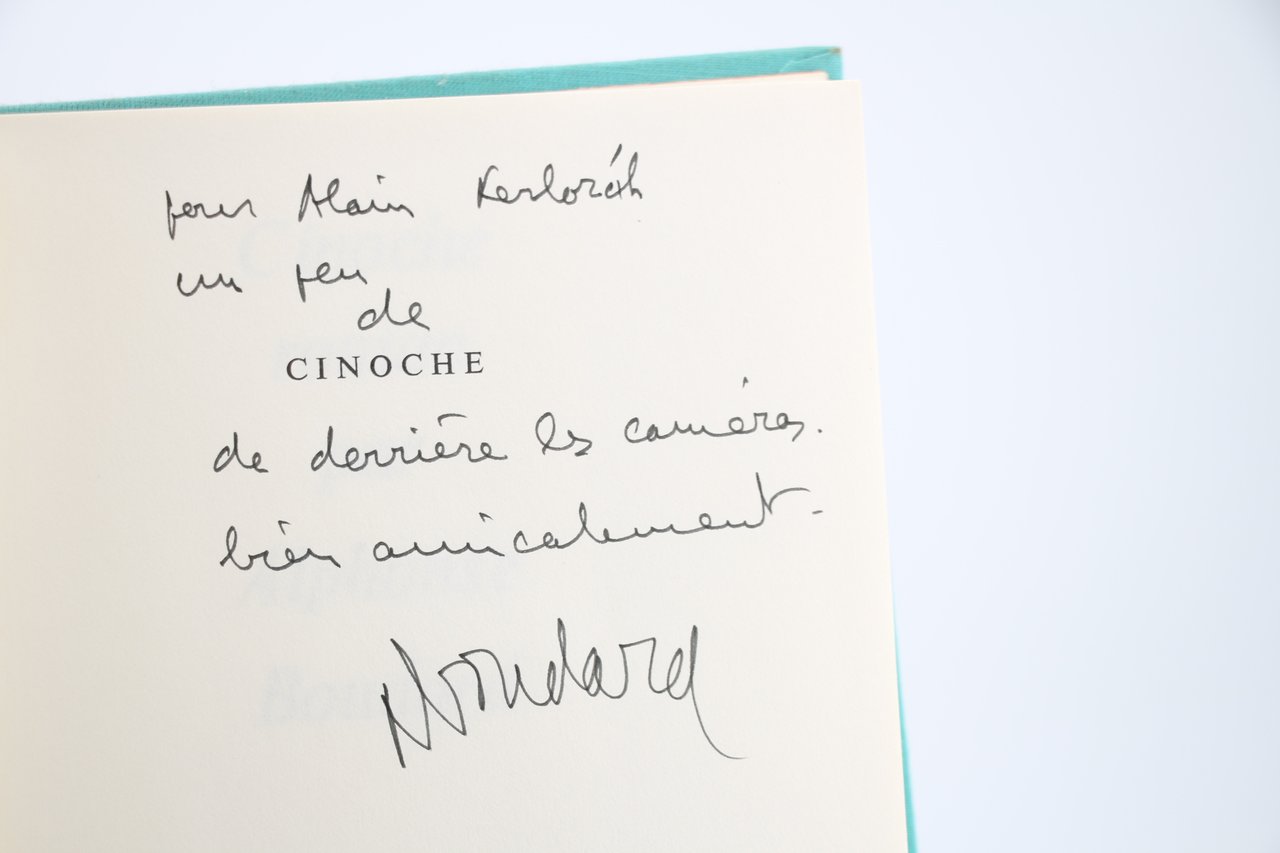 pour Alain
un peu
de
CINOCHE
de derrière les caméras.
bien amicalement -
ABoudard